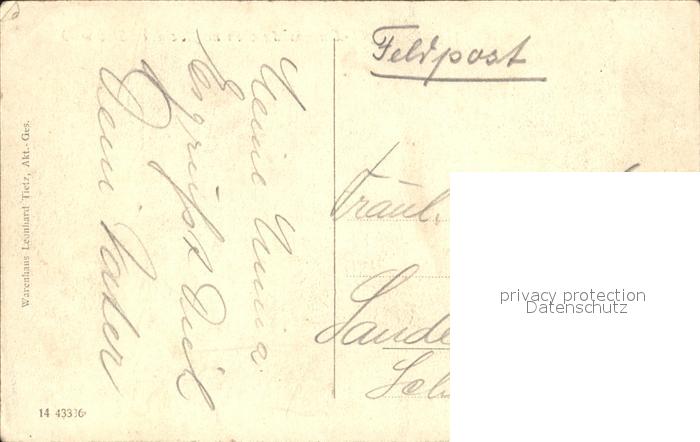 Feldpost
Meine Anna
Es grüßt Dich
Dein Vater
Fräul.
Sande
Sch
privacy protection
Datenschutz
Warenhaus Leonhard Tietz, Akt.-Ges.
14 43336